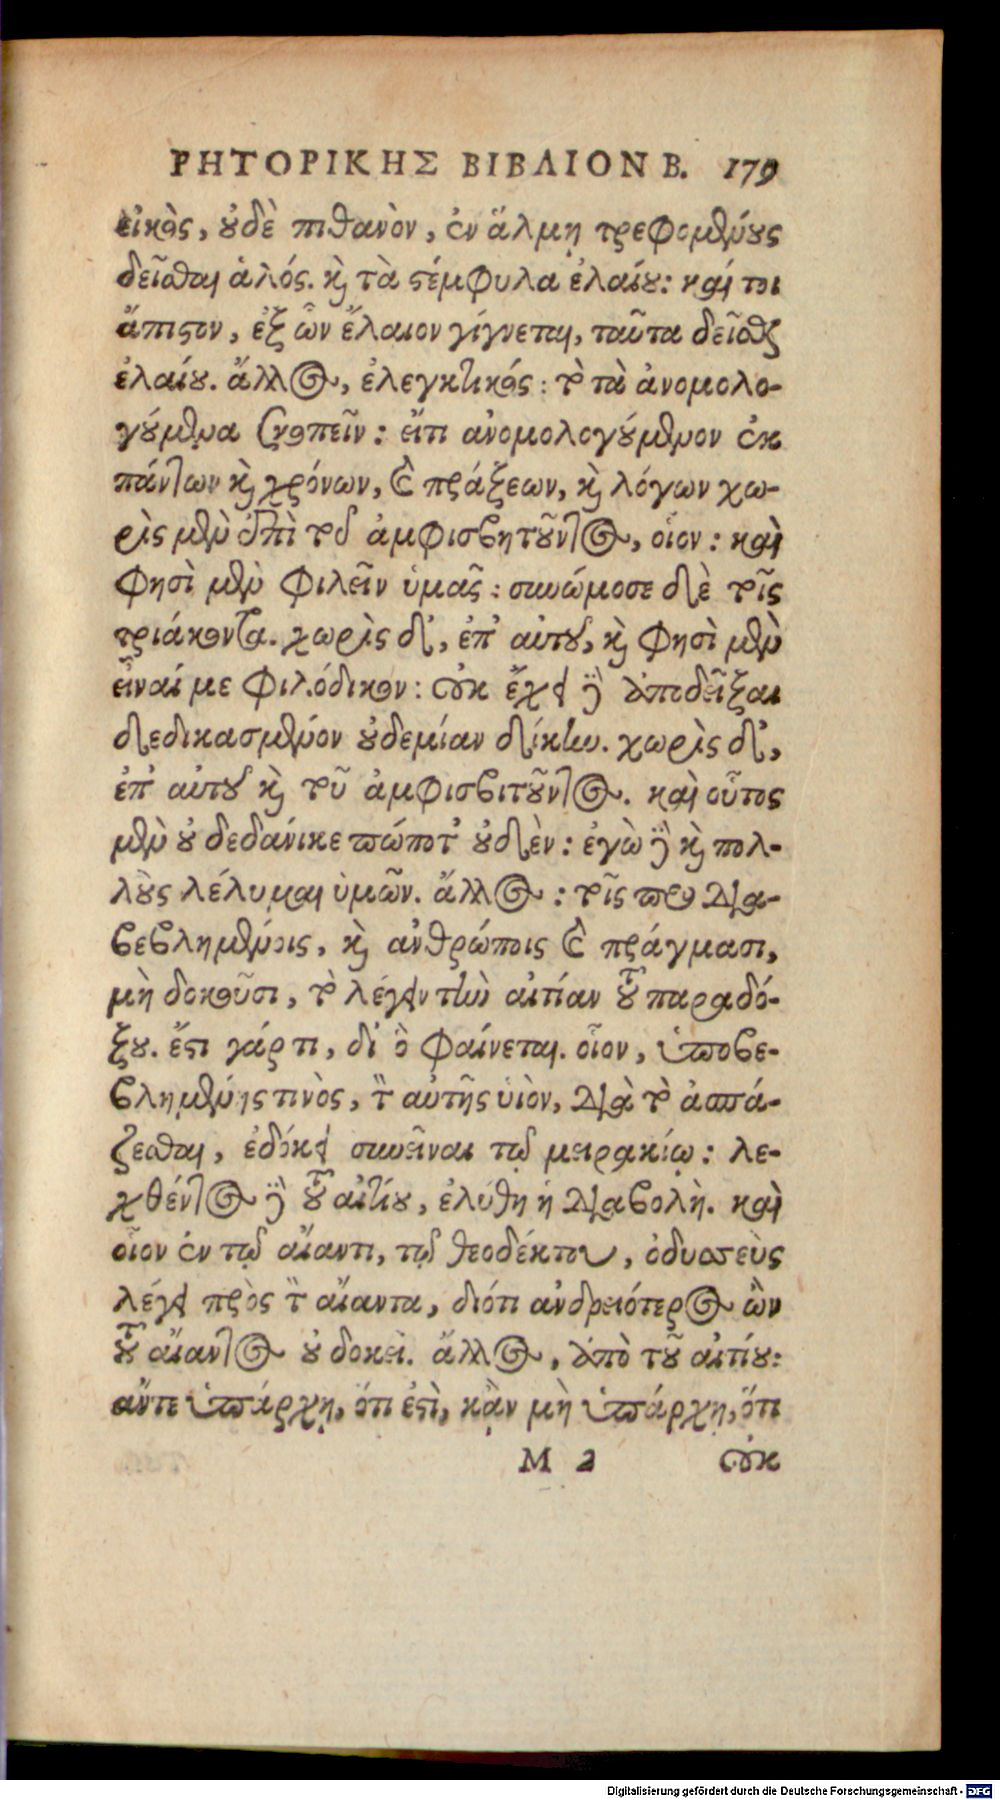 ΡΗΤΟΡΙΚΗΣ ΒΙΒΛΙΟΝ Β. 179
εἰκὸς, οὐδὲ πιθανὸν, ἐν ἅλμῃ τρεφομένους
δεῖσθαι ἁλός. καὶ τὰ στέμφυλα ἐλαίου: καί τοι
ἄπιστον, ἐξ ὧν ἔλαιον γίγνεται, ταῦτα δεῖσθαι
ἐλαίου. ἄλλος, ἐλεγκτικός: τὸ τὰ ἀνομολο-
γούμενα σκοπεῖν: εἴτι ἀνομολογούμενον ἐκ
πάντων καὶ χρόνων, καὶ πράξεων, καὶ λόγων χω-
ρὶς μὲν ἐπὶ τοῦ ἀμφισβητοῦντος, οἷον: καὶ
φησὶ μὲν φιλεῖν ὑμᾶς: συνώμοσε δὲ τοῖς
τριάκοντα. χωρὶς δ', ἐπ' αὐτοῦ, καὶ φησὶ μὲν
εἶναί με φιλόδικον: οὐκ ἔχει δὲ ἀποδεῖξαι
δεδικασμένον οὐδεμίαν δίκην. χωρὶς δ',
ἐπ' αὐτοῦ καὶ τοῦ ἀμφισβιτοῦντος. καὶ οὗτος
μὲν οὐ δεδάνικε πώποτ' οὐδὲν: ἐγὼ δὲ καὶ πολ-
λοὺς λέλυμαι ὑμῶν. ἄλλος: τοῖς προ δια-
βεβλημένοις, καὶ ἀνθρώποις καὶ πράγμασι,
μὴ δοκοῦσι, τὸ λέγειν τὴν αἰτίαν τοῦ παραδό-
ξου. ἔστι γάρ τι, δι' ὃ φαίνεται. οἷον, ὑποβε-
βλημένης τινὸς, τὸν αὐτῆς υἱὸν, διὰ τὸ ἀσπά-
ζεσθαι, ἐδόκει συνεῖναι τῷ μειρακίῳ: λε-
χθέντος δὲ τοῦ αἰτίου, ἐλύθη ἡ διαβολὴ. καὶ
οἷον ἐν τῷ αἴαντι, τῷ θεοδέκτου, ὀδυσσεὺς
λέγει πρὸς τὸν αἴαντα, διότι ἀνδρειότερος ὢν
τοῦ αἴαντος οὐ δοκεῖ. ἄλλος, ἀπὸ τοῦ αἰτίου:
ἄντε ὑπάρχῃ, ὅτι ἐστὶ, κἂν μὴ ὑπάρχῃ, ὅτι
M 2 οὐκ
Digitalisierung gefördert durch die Deutsche Forschungsgemeinschaft - DFG